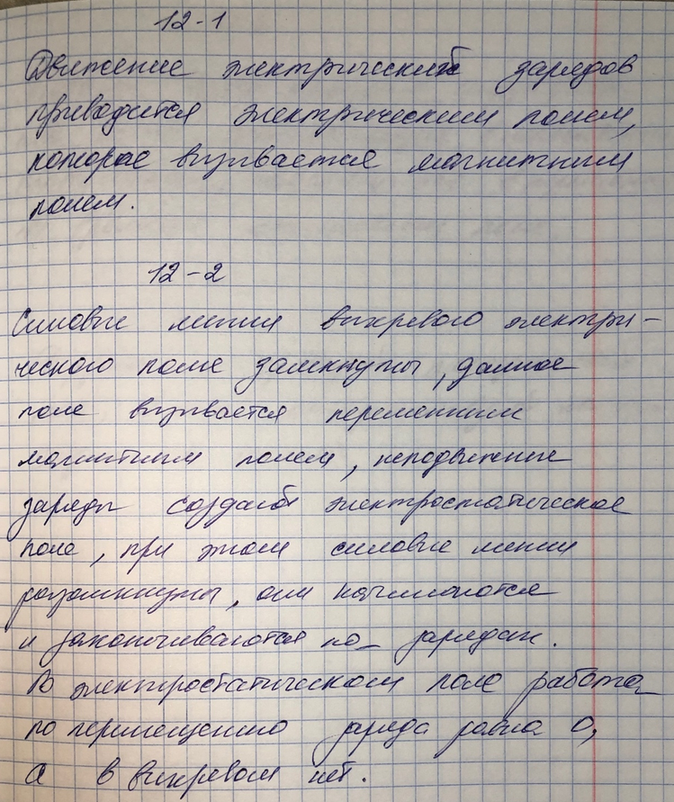 12-1
Движение электрический зарядов
приводится электрическим полем,
которое вызывается магнитным
полем.
12-2
Силовые линии вихревого электри-
ческого поле замкнуты, данное
поле вызывается переменным
магнитным полем, неподвижные
заряды создают электростатическое
поле, при этом силовые линии
разомкнуты, они начинаются
и заканчиваются на зарядах.
В электростатическом поле работа
по перемещению заряда равна 0,
а в вихревом нет.